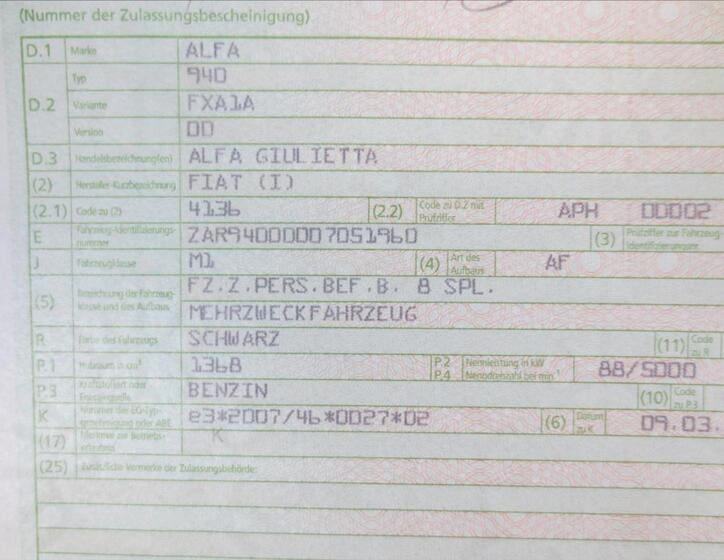 (Nummer der Zulassungsbescheinigung)
D.1 Marke ALFA
Typ 940
D.2 Variante FXA1A
Version 00
D.3 Handelsbezeichnung(en) ALFA GIULIETTA
(2) Hersteller-Kurzbezeichnung FIAT (I)
(2.1) Code zu (2) 4136 (2.2) Code zu D.2 mit Prüfziffer APH 00002
E Fahrzeug-Identifizierungs-nummer ZAR94000007051960 (3) Prüfziffer zur Fahrzeug-Identifizierungsnr.
J Fahrzeugklasse M1 (4) Art des Aufbaus AF
(5) Bezeichnung der Fahrzeug-klasse und des Aufbaus FZ.Z.PERS.BEF.B. 8 SPL.
MEHRZWECKFAHRZEUG
R Farbe des Fahrzeugs SCHWARZ (11) Code zu R
P.1 Hubraum in cm³ 1368 P.2 Nennleistung in kW P.4 Nenndrehzahl bei min⁻¹ 88/5000
P.3 Kraftstoffart oder Energiequelle BENZIN (10) Code zu P.3
K Nummer der EG-Typ-genehmigung oder ABE e3*2007/46*0027*02 (6) Datum zu K 09.03.
(17) Merkmal zur Betriebs-erlaubnis K
(25) Zusätzliche Vermerke der Zulassungsbehörde: